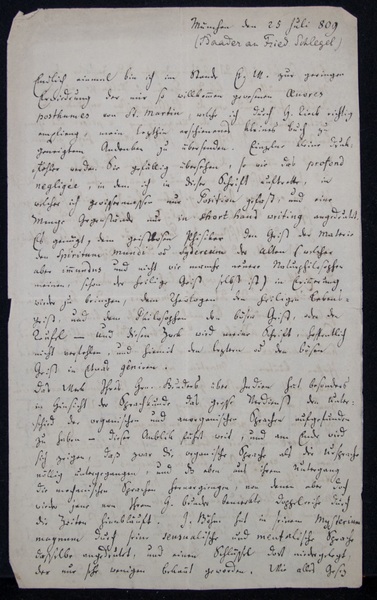 München den 25 Juli 809
(Baader an Fried Schlegel)
Endlich einmal bin ich im Stande Ew. zur geringen
Erwiderung der mir so willkommen gewesenen Œuvres
posthumes von St. Martin, welche ich durch H. Link richtig
empfieng, mein letzthin erschienenes kleines Buch zu
geneigtem Andenken zu übersenden. Einzelne kleine Druk-
fehler werden Sie gefällig übersehen, so wie das profond
negligée, in dem ich in dieser Schrift auftrete, in
welcher ich gewissermassen nur Position gefasst, und eine
Menge Gegenstände nur in short hand writing angedeutet.
Es genügt, dem Physiker den Geist der Materie
den Spiritum mundi der Alten (welcher
aber immundus und nicht wie manche neuere Naturphilosophen
meinen, schon der heilige Geist selbst ist) in Erinnerung
wieder zu bringen, dem Theologen den heiligen
Geist, und dem Philosophen den bösen Geist, oder den
Teufel — und diesen Zwek wird meine Schrift, hoffentlich
nicht verfehlen, und hiemit den letztern den bösen
Geist in Etwas géniren.
Das Werk Ihres Hrn. Bruders über Indien hat besonders
in Hinsicht der Sprachkunde, das große Verdienst den Unter-
schied der organischen und anorganischen Sprachen aufgefunden
zu haben — dieser Anblik führt weit, und am Ende wird
sich zeigen, daß zwar die organische Sprache als die Ursprache
völlig untergegangen, und daß eben aus ihrem Untergang
die mechanischen Sprachen hervorgiengen, von denen aber auch
wieder jene von Ihrem H. Bruder bemerkte Doppelreihe durch
die Zeiten hindurchläuft. J. Böhm hat in seinem Mysterium
magnum durch seine sensualische und mentalische Sprache
dasselbe angedeutet, und einen Schlüssel dort niedergelegt
der nur sehr wenigen bekannt geworden. Wie alles Große